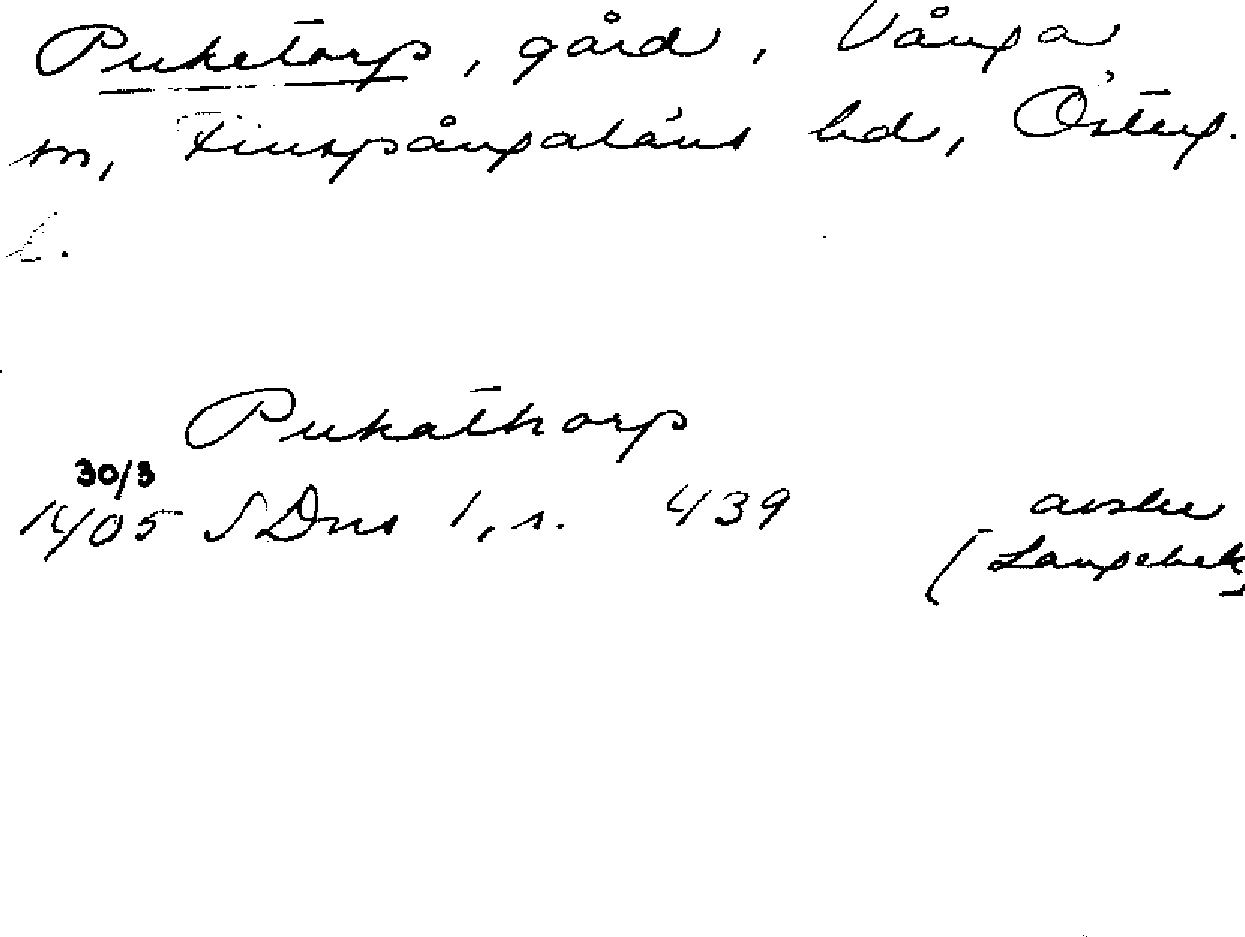 Puketorp, gård, Vånga
sn, Finspångaläns hd, Österg.
l.
Pukathorp
30/3
1405 SDns 1, s. 439 avskr
(Langebek)